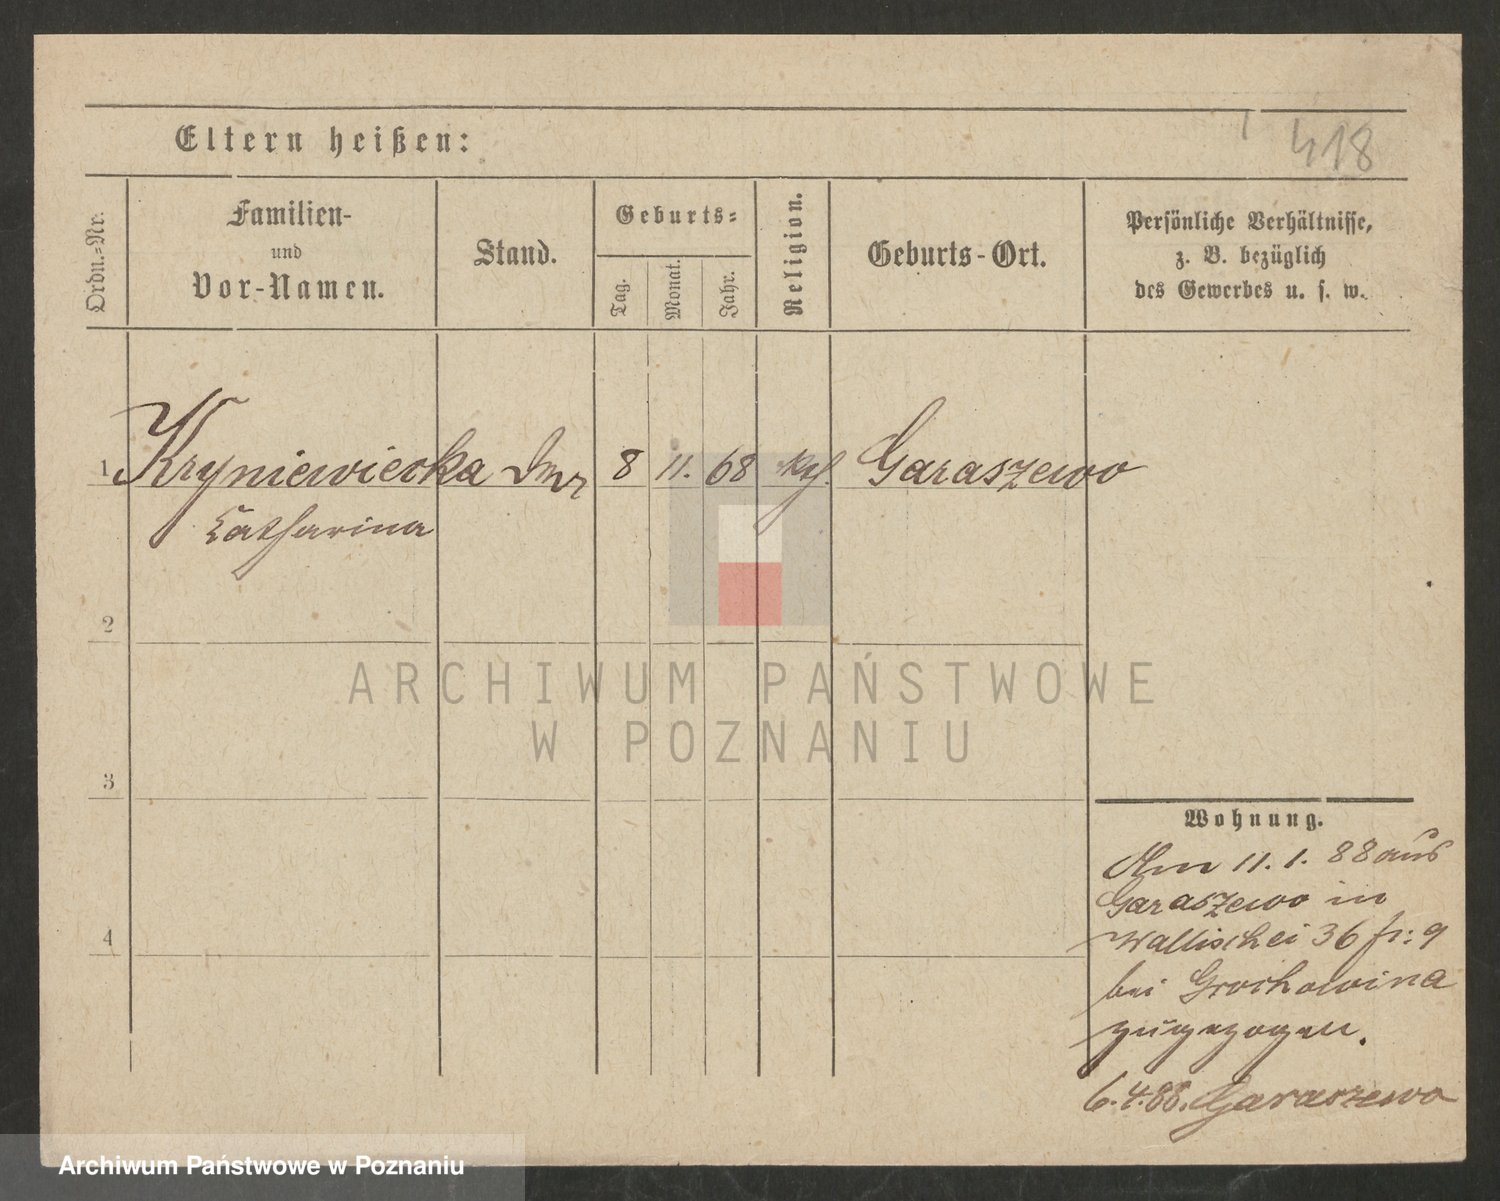 418
Eltern heißen:
Ordn.-Nr.
Familien-
und
Vor-Namen.
Stand.
Geburts-
Tag.
Monat.
Jahr.
Religion.
Geburts-Ort.
Persönliche Verhältnisse,
z. B. bezüglich
des Gewerbes u. s. w.
1 Kryniewiecka 8 11. 68 Garaszewo
Catharina
2
3
4
Wohnung.
Am 11. 1. 88 aus
Garaszewo in
Wallischei 36 fr: 9
bei Grochowina
zugezogen.
6.4.88. Garaszewo
ARCHIWUM PAŃSTWOWE
W POZNANIU
Archiwum Państwowe w Poznaniu